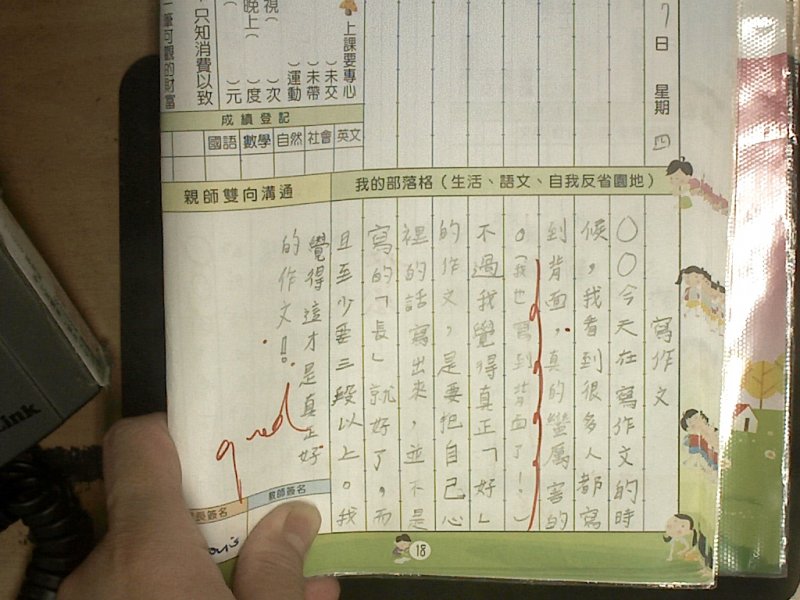 7日 星期四
上課要專心
( )未交
( )未帶
( )運動
視( )次
晚上( )度
( )元
只知消費以致
一筆可觀的財富
成績登記
國語 數學 自然 社會 英文
我的部落格(生活、語文、自我反省園地)
親師雙向溝通
寫作文
○○今天在寫作文的時
候，我看到很多人都寫
到背面，真的蠻厲害的
。(我也寫到背面了！)
不過我覺得真正「好」
的作文，是要把自己心
裡的話寫出來，並不是
寫的「長」就好了，而
且至少要三段以上。我
覺得這才是真正好
的作文！
good
教師簽名
長簽名
18
ink